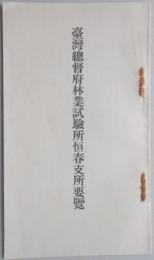 臺灣總督府林業試驗所恒春支所要覽